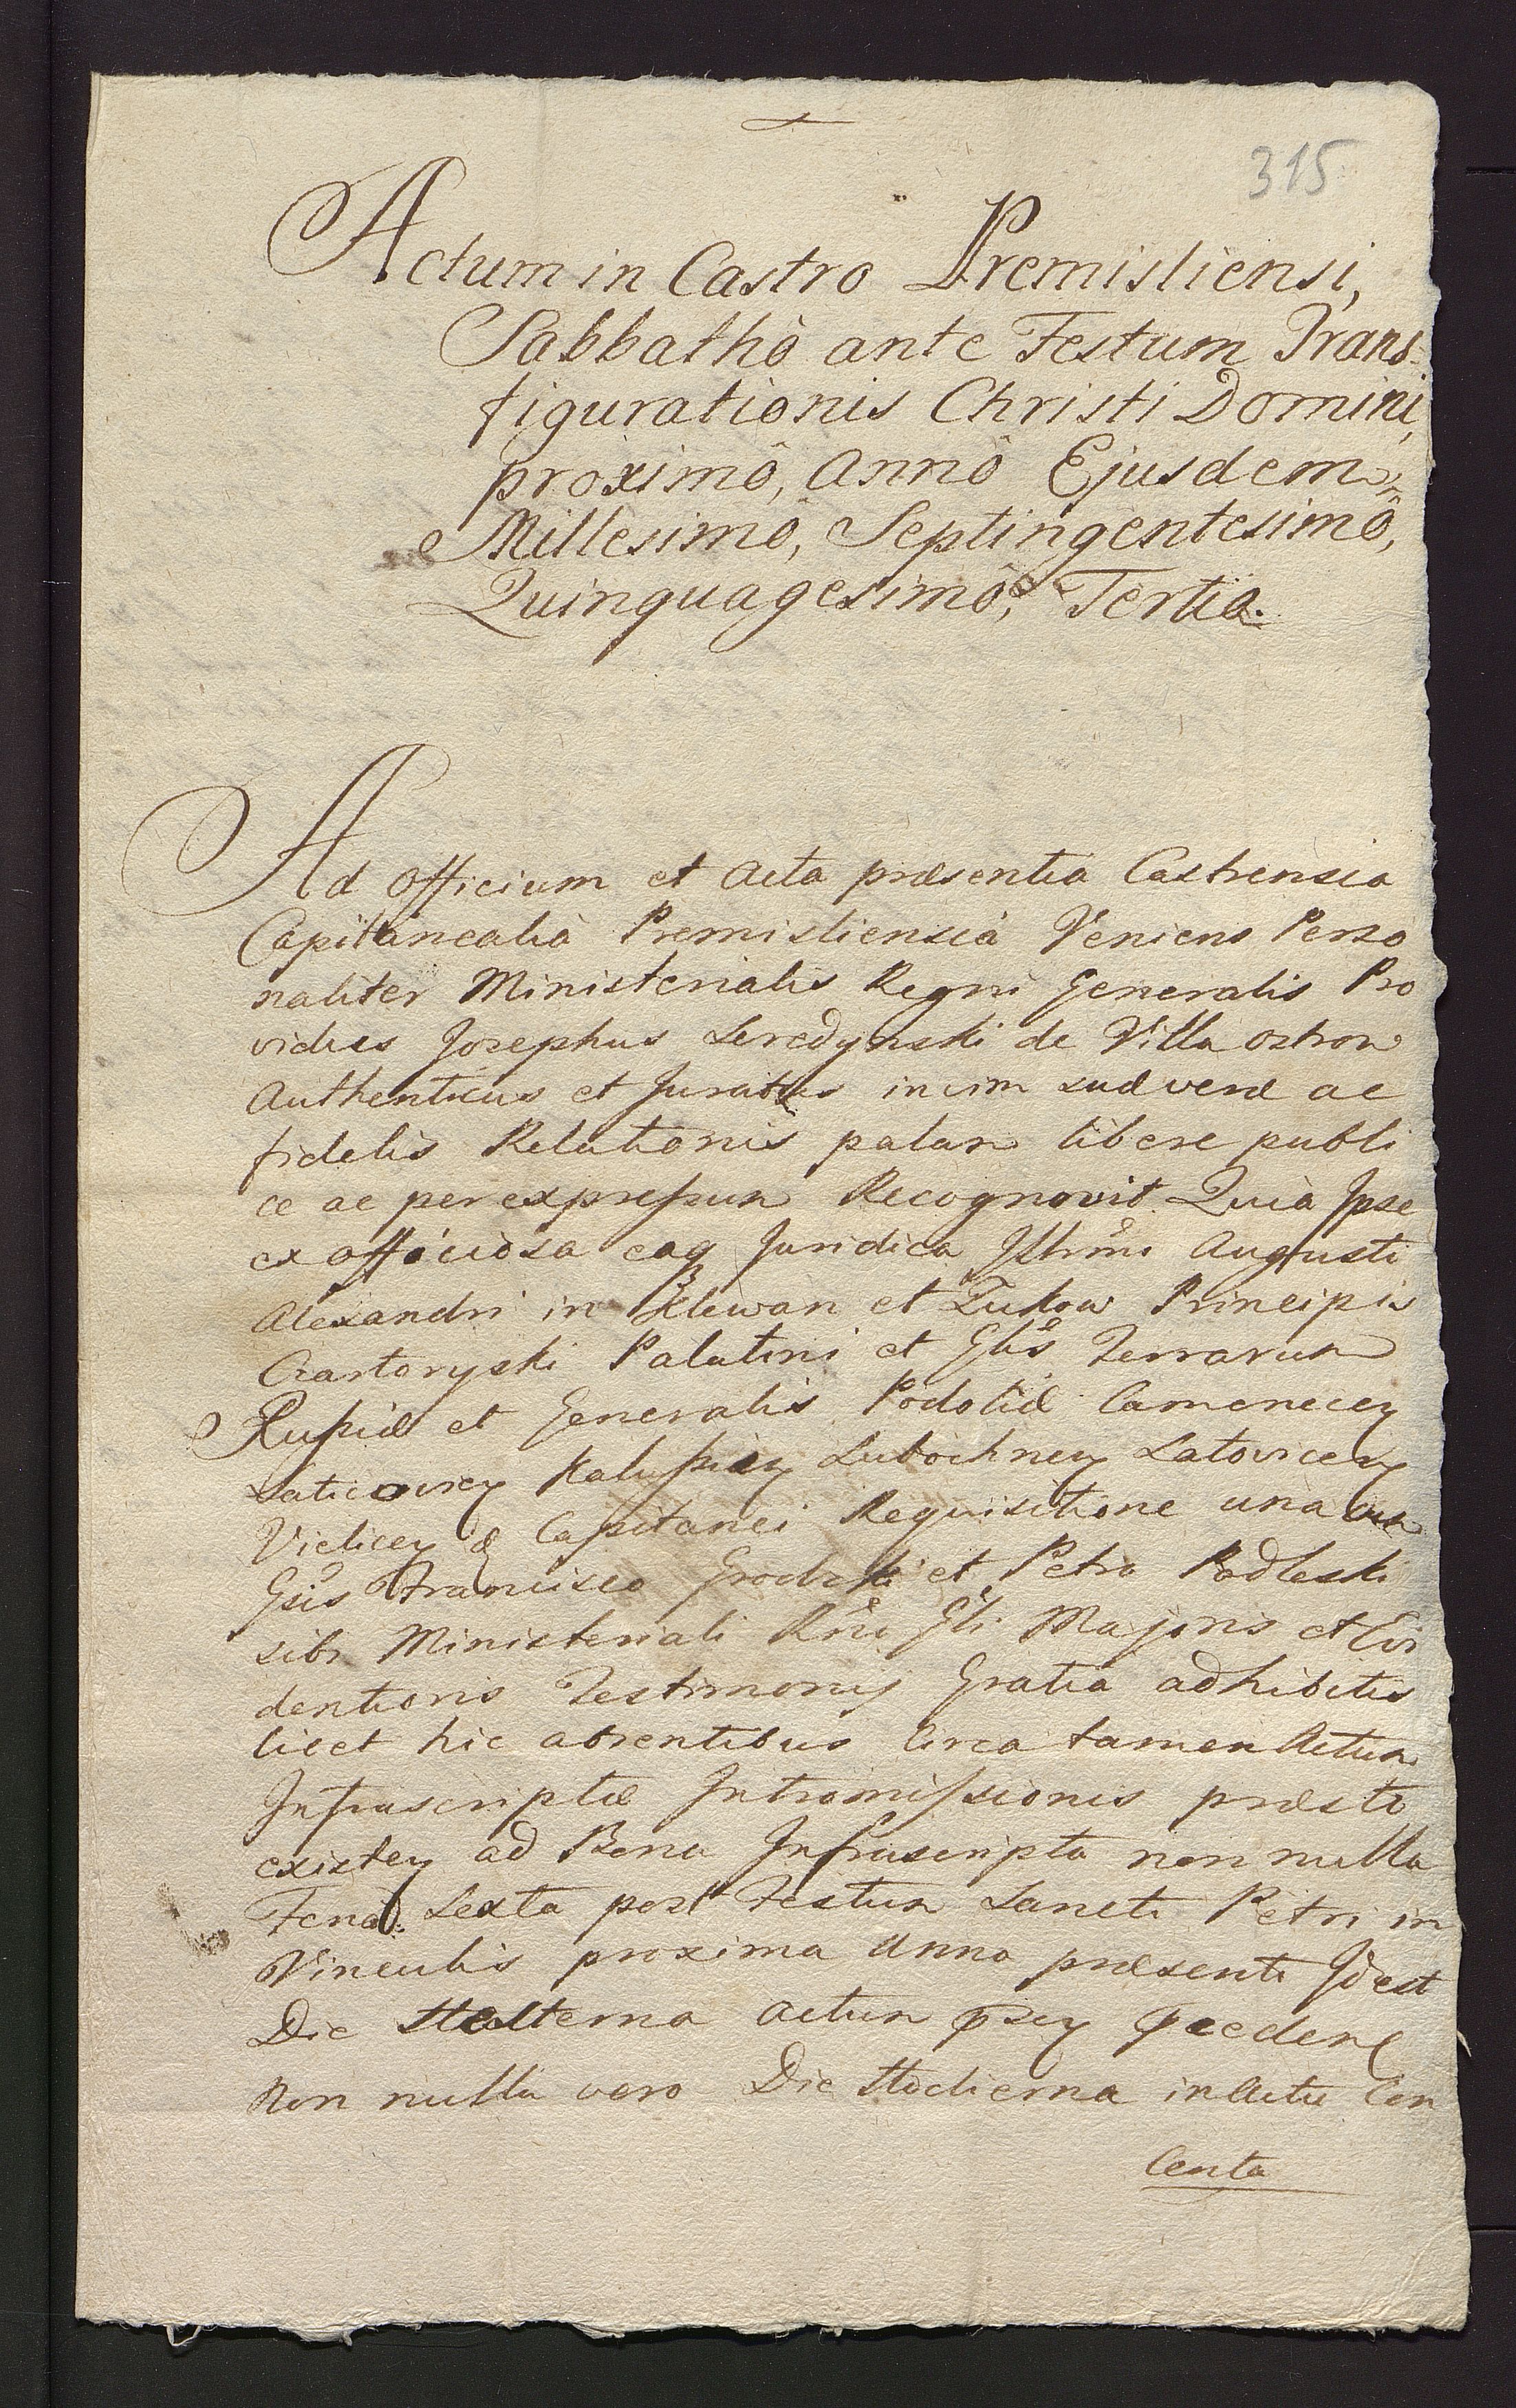 315
Actum in Castro Premisliensi,
Sabbathô ante Festum Trans-
figurationis Christi Domini,
proximô, Annô Ejusdem
Millesimô, Septingentesimô,
Quinquagesimô, Tertio.
Ad Officium et Acta præsentia Castrensia
Capitanealia Premisliensia Veniens Perso
naliter Ministerialis Regni Generalis Pro
vidus Josephus Seredynski de Villa Ostrow
Authenticus et Juratus in vim suæ veræ ac
fidelis Relationis palam libere publi
ce ac per expressum Recognovit Quia Ipse
ex officiosa eaq Juridica Illrmi Augusti
Alexandri in Klewan et Zukow Principis
Czartoryski Palatini et Glis Terrarum
Russiæ et Generalis Podoliæ Camenecen
Laticovien Kalussien Lubochnen Latovicen
Vielicen & Capitanei Requisitione una cum
Gsis Francisco Grodzki et Petro Podleski
sibi Ministeriali Rni Gli Majoris et Evi
dentioris Testimonij Gratia adhibitis
licet hic absentibus Circa tamen Actum
Infrascriptæ Intromissionis præsto
existen ad Bona Infrascripta non nulla
Feria Sexta post Festum Sancti Petri in
Vinculis proxima Anno præsenti Id est
Die Hesterna Actum psen præceden
Non nulla vero Die Hodierna in Actu Con
Centa